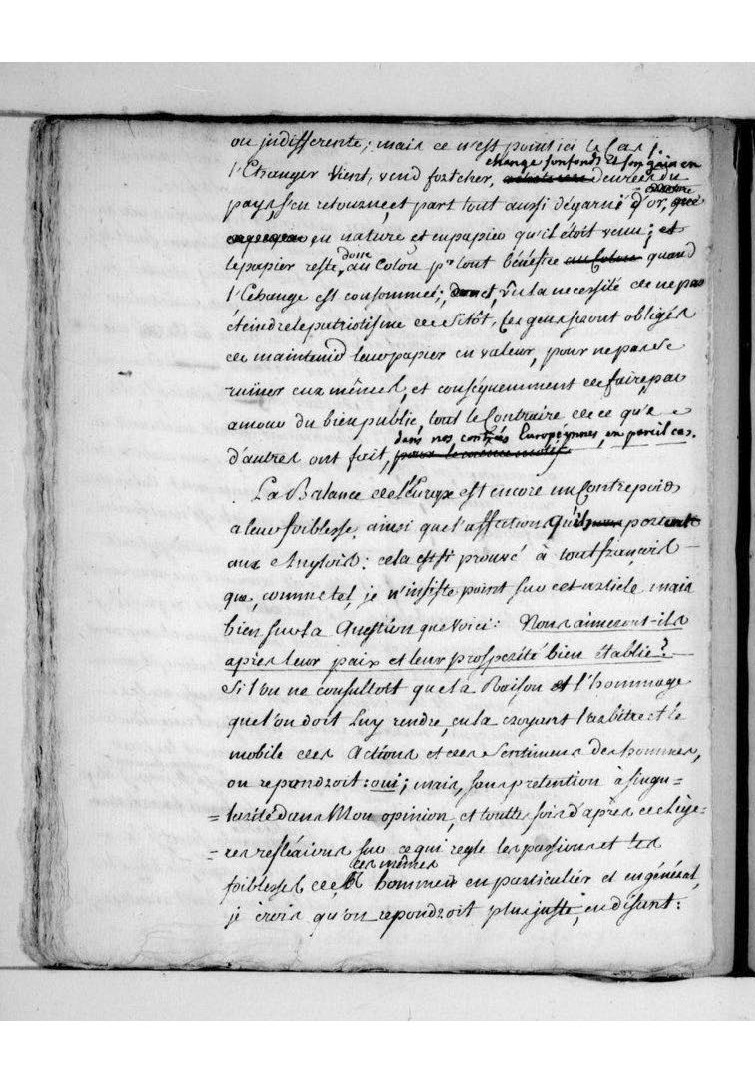 ou indifferente; mais ce n'est point ici le Cas!.
change son fonds et son gain en
l'Etranger vient, vend fort cher, denrées du
pays, s'en retourne, et part tout aussi dégarni d'or,
en nature et en papier qu'il étoit venu; et
donc
le papier reste au Colon pr tout bénéfice au Colon quand
l'Echange est consommé; donc, vû la necessité de ne pas
éteindre le patriotisme de sitôt, ces gens seront obligés
de maintenir leur papier en valeur, pour ne pas se
ruiner eux mêmes, et conséquemment de faire, par
amour du bien public, tout le Contraire de ce que
dans nos contrées Européynnes, en pareil cas.
d'autres ont fait, pour le meme motif.
La Balance de l'Europe est encore un Contrepoids
a leur foiblesse, ainsi que l'affection qu'ils portent
aux Anglois: cela est si prouvé à tout françois
que, comme tel, je n'insiste point sur cet article mais
bien sur la Question que voici: Nous aimeront-ils
après leur paix et leur prosperité bien établie?
Si l'on ne consultoit que la Raison et l'hommage
que l'on doit Luy rendre, en la croyant l'arbitre et le
mobile des Actions et des Sentimens des hommes,
on repondroit: oui; mais, sans prétention à singu-
=larité dans Mon opinion, et toutte fois d'après de lége-
-res refléxions sur ce qui regle les passions et les
ces mêmes
foiblesses des hommes en particulier et en général,
je crois qu'on repondroit plus juste, en disant: